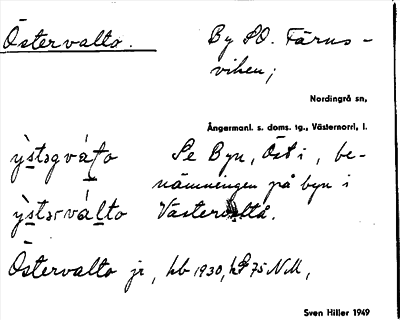 Östervalto.
By SO. Färns-
viken;
Nordingrå sn,
Ångermanl. s. doms. tg., Västernorrl. l.
Se Byn, Öst i, be-
nämningen på byn i
Västervalto.
Östervalto jr, hb 1930, 75 NM,
Sven Hiller 1949